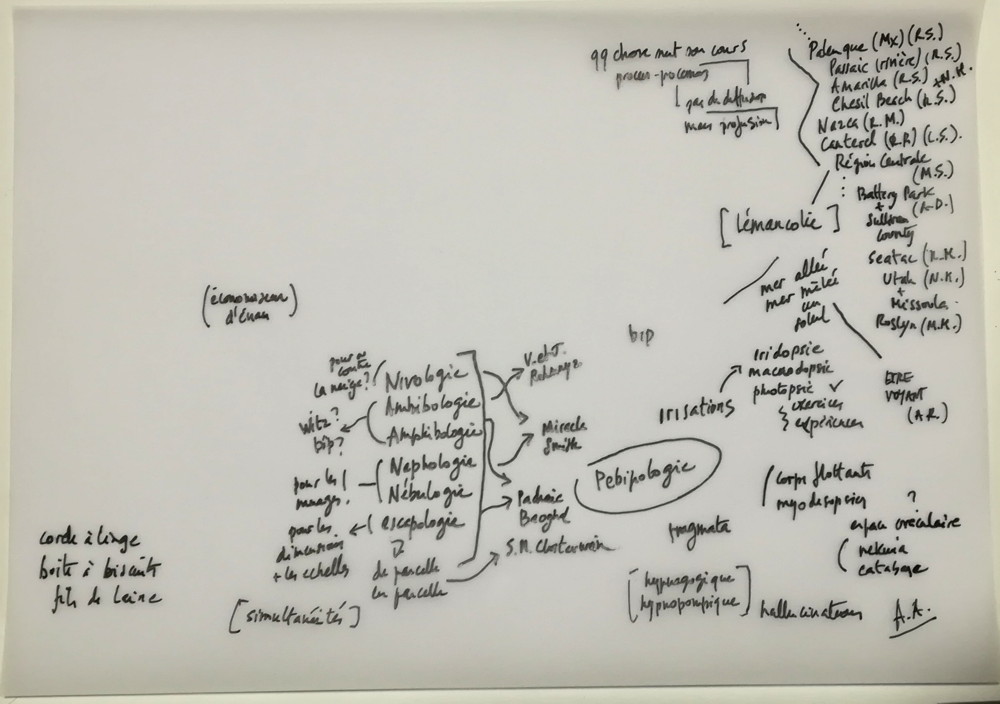 qq chose suit son cours
procès-processus
pas de diffusion
mais profusion
Palenque (Mx) (R.S.)
Passaic (rivière) (R.S.)
Amarillo (R.S.) + N.H.
Chesil Beach (R.S.)
Nazca (R.M.)
Canterel (R.R) (L.S.).
Région Centrale
(M.S.)
Battery Park
+ (A.D.)
Sullivan
County
Seatac (K.K.)
Utah (N.H.)
+
Missoula
Roslyn (M.H.)
[Lémancolie]
mer allée
mer mêlée
au
soleil
(économiseur
d'écran)
bip
iridopsie
macrodopsie
photopsie
exercices
expériences
irisations
ETRE
VOYANT
(A.R.)
pour ou
contre
la neige?
Nivologie
Ambibologie
Amphibologie
witz?
bip?
pour les
nuages.
Nephologie
Nébulogie
escapologie
pour les
dimensions
+ les échelles
de parcelle
en parcelle
[simultanéités]
V. et J.
Miracle
Smith
Padraic
S.N.
Pebipologie
corps flottants
myodesopsies
?
espace oraculaire
nekuia
catabase
fragmata
[hypnagogique
hypnopompique]
hallucinations
A.A.
corde à linge
boîte à biscuits
fils de laine